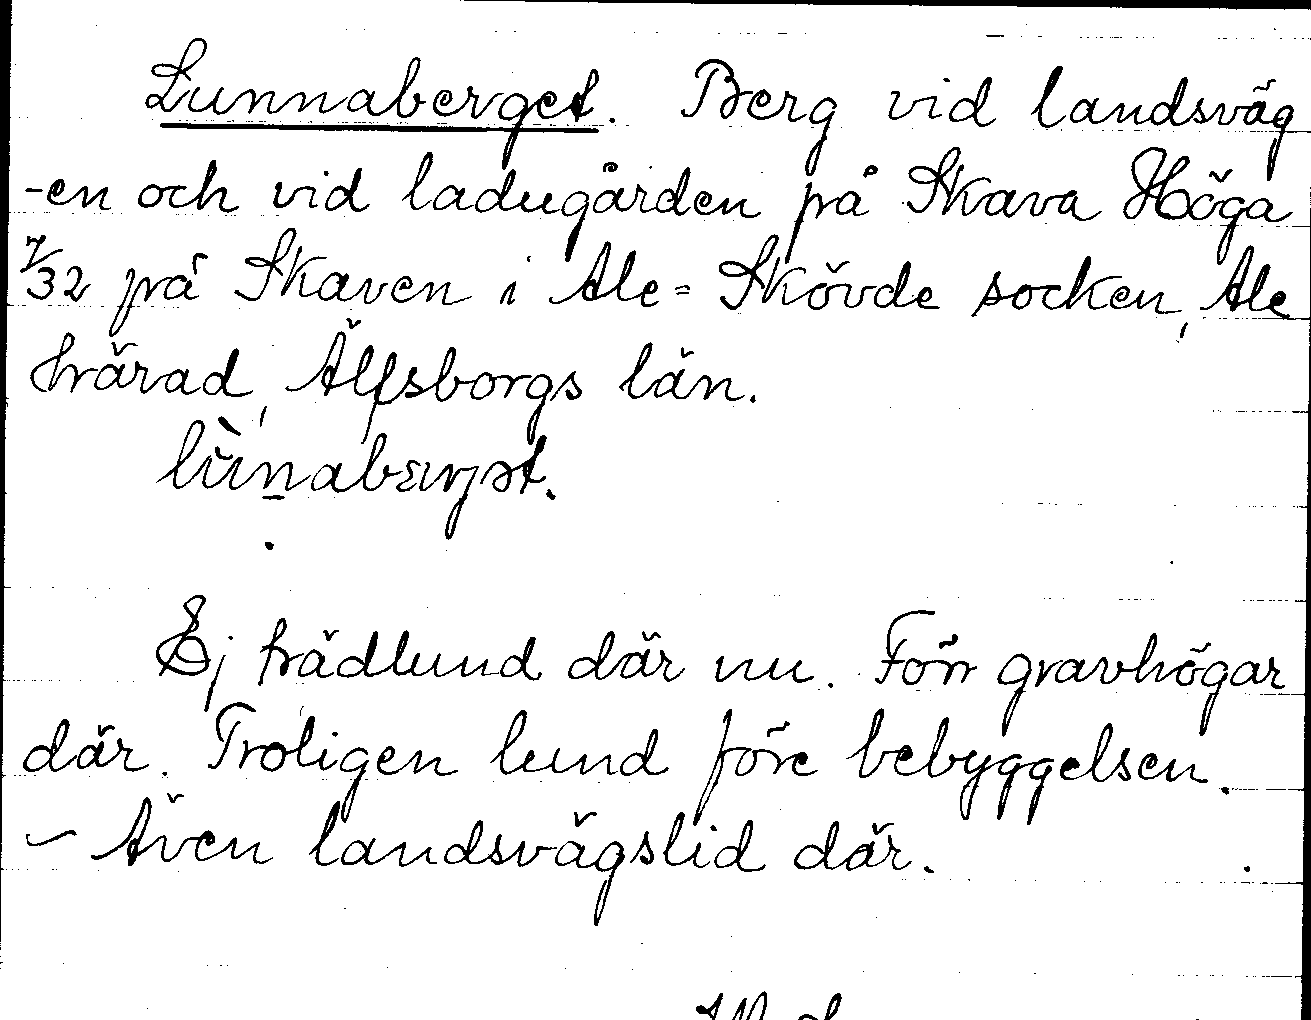 Lunnaberget. Berg vid landsväg
-en och vid ladugården på Skava Höga
7/32 på Skaven i Ale=Skövde socken, Ale
härad, Älfsborgs län.
Ej trädlund där nu. Förr gravhögar
där. Troligen lund före bebyggelsen.
– Även landsvägslid där.